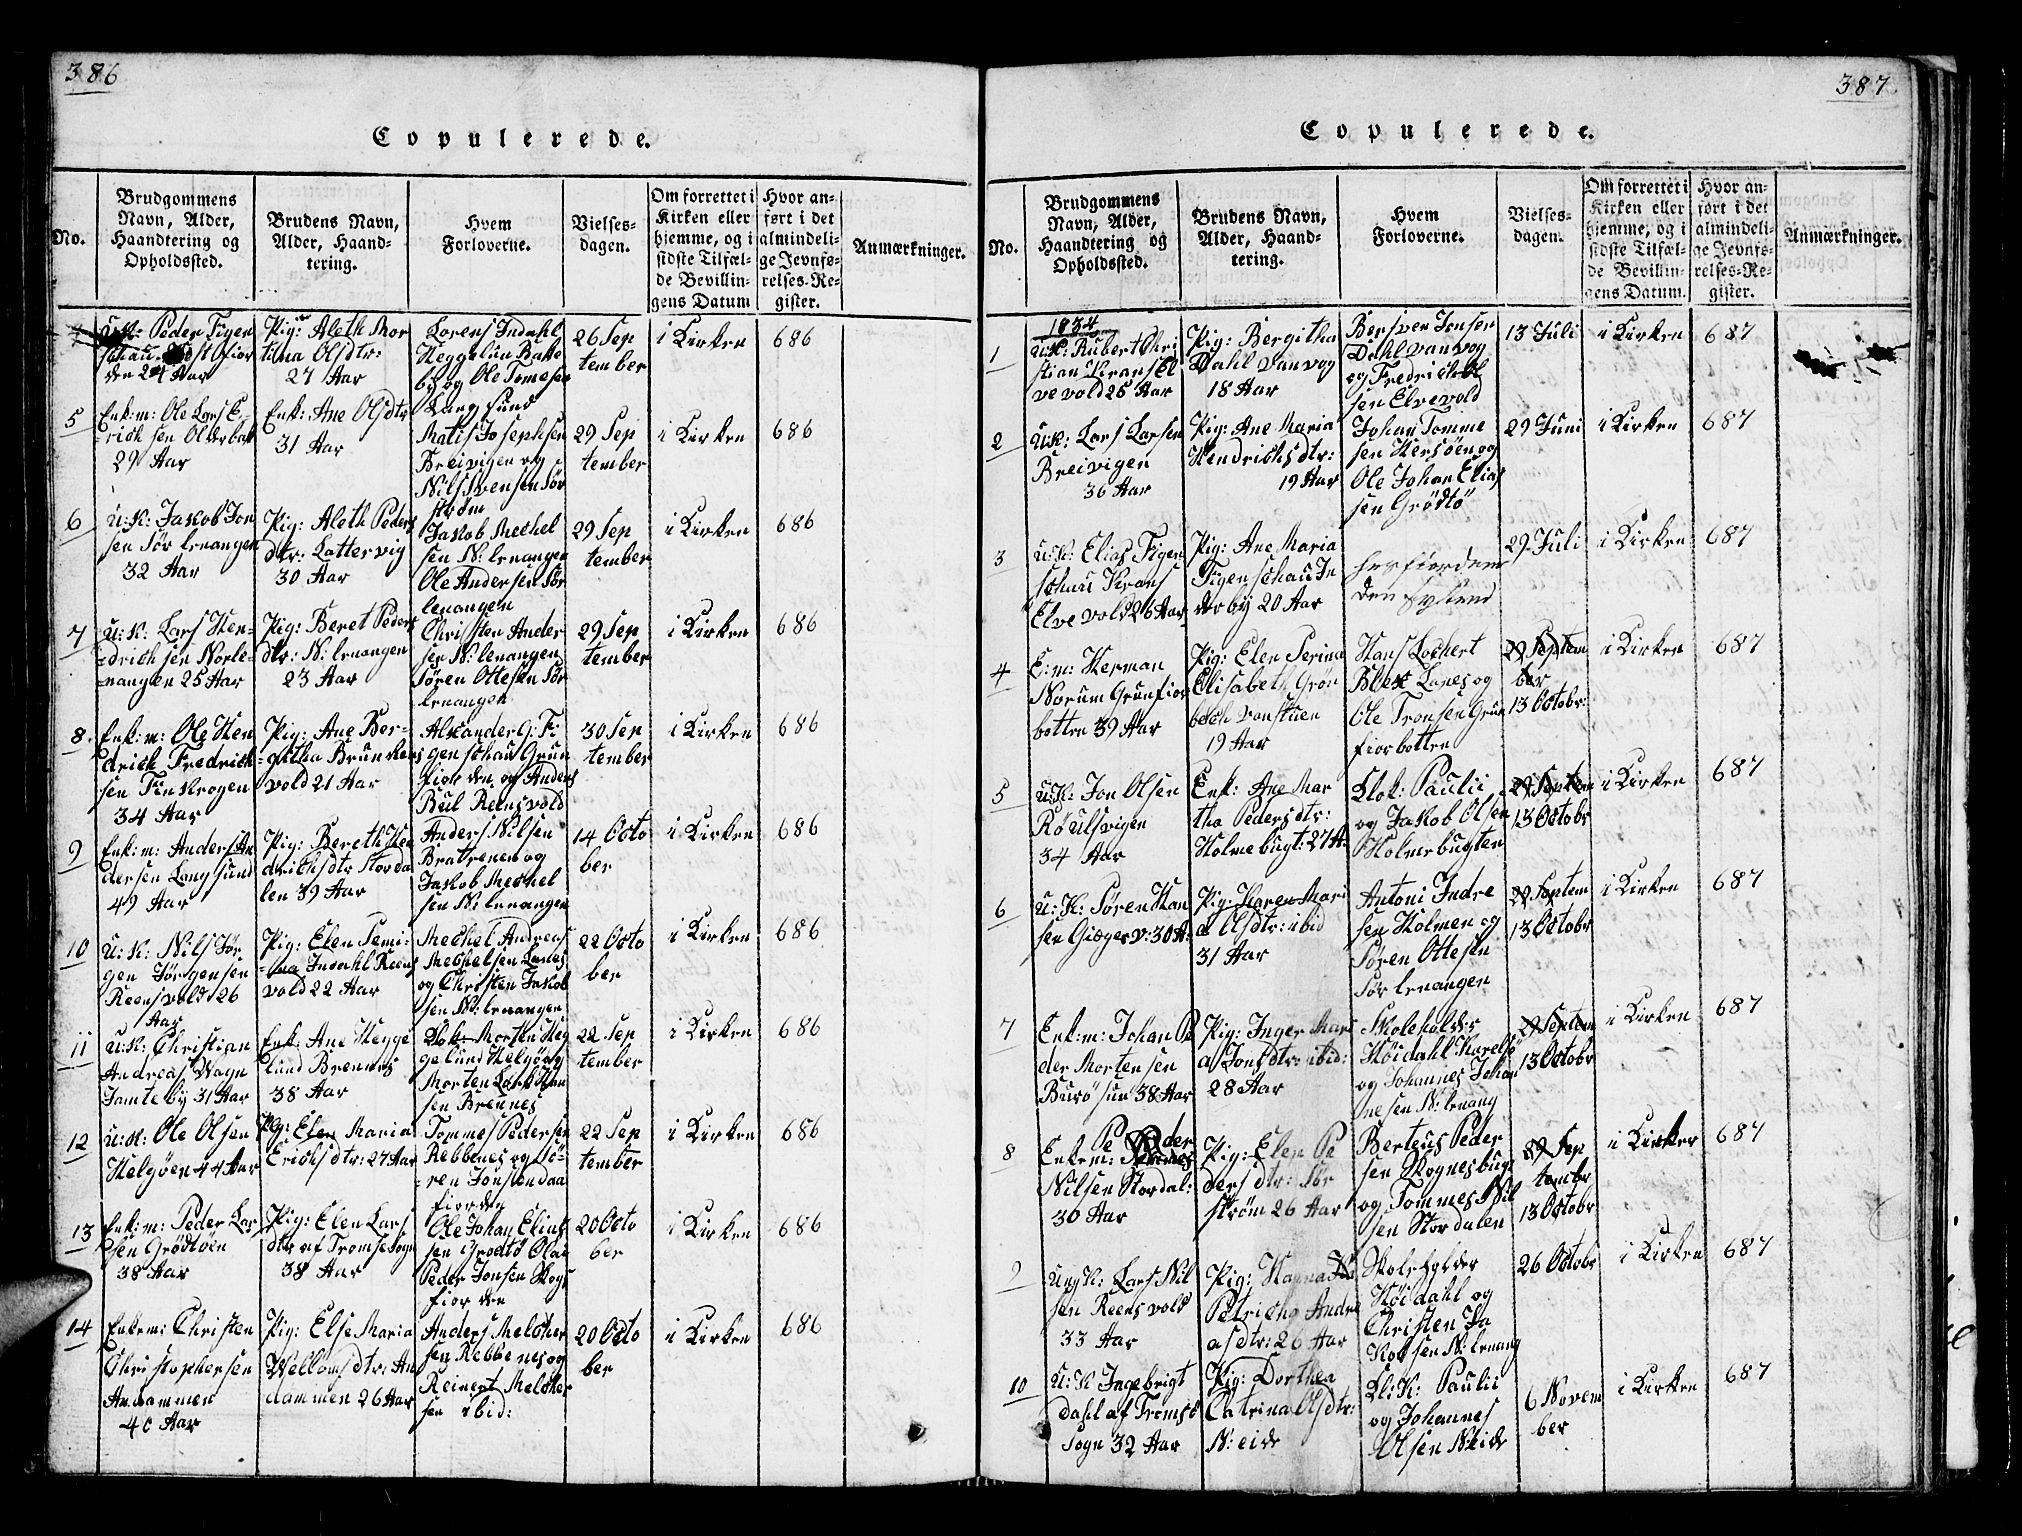 386
Copulerede.
No.
Brudgommens
Navn, Alder,
Haandtering og
Opholdssted.
Brudens Navn,
Alder, Haand-
tering.
Hvem
Forloverne.
Vielses-
dagen.
Om forrettet i
Kirken eller
hjemme, og i
sidste Tilfæl-
de Bevillin-
gens Datum
Hvor an-
ført i det
almindeli-
ge Jevnfø-
relses-Re-
gister.
Anmærkninger.
U:K: Peder Figen
schau
den 24 Aar
Pig: Aleth Mar
tina Olsdtr:
27 Aar
Lorens Indahl
Heggelun Bake
by og Ole Tomesen
Lang sund
26 Sep
tember
i Kirken
686
5
Enk:m: Ole Lars E-
-rich sen Olderbak
29 Aar
Enk: Ane Olsdtr
31 Aar
Matis Josephsen
Breivigen og
Nils Svensen Sør
strøm
29 Sep
tember
i Kirken
686
6
U:K: Jakob Jon
sen Sør lenangen
32 Aar
Pig: Aleth Peders
dtr: Lattervig
30 Aar
Jakob Mechel
sen N: lenangen
Ole Andersen Sør
lenangen
29 Sep
tember
i Kirken
686
7
U:K: Lars Hen-
-drich sen Norle-
-nangen 25 Aar
Pig: Beret Peders
dtr: N: lenangen
23 Aar
Christen Ander
sen N: lenangen
Søren Ottesen Sør
lenangen
29 Sep
tember
i Kirken
686
8.
Enk:m: Ole Hen
drick Fredrick
sen Finkrogen
34 Aar
Pig: Ane Ber-
-githa Brun Reens
vold 21 Aar
Alexander G: Fi
gen schau Grun
fior den og Anders
Bul Reensvold
30 Sep
tember
i Kirken
686
9
Enk:m: Anders An
dersen Langsund
49 Aar
Pig: Bereth Hen
drichsdtr Storda
len 39 Aar
Anders Nilsen
Bratrenen og
Jakob Mechel
sen N: lenangen
14 Octo
ber
i Kirken
686
10
U:K: Nils Jør
gen Jørgensen
Reensvold 26
Aar
Pig: Elen Semi-
-na Indahl Reens
vold 22 Aar
Mechel Andreas
Mechelsen Lanes
og Christen Jakob
sen N: lenangen
22 Octo
ber
i Kirken
686
11
U:K: Christian
Andreas Wagn
Jamte by 31 Aar
Enk: Ane Hegge
lund Brennes
38 Aar
Klok: Morten Heg
ge lund Helgøe og
Morten Lark Han
sen Brennes
22 Sep
tember
i Kirken
686
12
U:K: Ole Olsen
Helgøen 44 Aar
Pig: Elen Maria
Erichsdtr: 27 Aar
Tommes Pedersen
Rebbenes og Sø-
-ren Jonsen Daa
fiorden
22 Sep
tember
i Kirken
686
13
Enk:m: Peder Lar
sen Grødtøen
38 Aar
Pig: Elen Lars
dtr af Tromsø Sogn
38 Aar
Ole Johan Elias
sen Grødtø Olai
Peder Jonsen Skogs
fior den
20 Octo
ber
i Kirken
686
14
Enkem: Christen
Christophersen
An dammen
40 Aar
Pig: Else Maria
Wellomsdtr: An
dammen 26 Aar
Anders Melcher
sen Rebbenes og
Reinert Melcher
sen ibid:
20 Octo
ber
i Kirken
686
387
Copulerede.
No.
Brudgommens
Navn, Alder,
Haandtering og
Opholdssted.
Brudens Navn,
Alder, Haand-
tering.
Hvem
Forloverne.
Vielses-
dagen.
Om forrettet i
Kirken eller
hjemme, og i
sidste Tilfæl-
de Bevillin-
gens Datum.
Hvor an-
ført i det
almindeli-
ge Jevnfø-
relses-Re-
gister.
Anmærkninger.
1834
1
U:K: Rubert Chri
stian Krans El
vevold 25 Aar
Pig: Bergitha
Dahl Vanvog
18 Aar
Bersven Jonsen
Dahl Vanvog
og Fredrich Ol
sen Elvevold
13 Juli
i Kirken
687
2
U:K: Lars Larsen
Breivigen
36 Aar
Pig: Ane Maria
Hendrichsdtr:
19 Aar
Johan Tomme
sen Hersøen og
Ole Johan Elias
sen Grødtø
29 Juni
i Kirken
687
3
U:K: Elias Figen
schau Krans
Elvevold 26 Aar
Pig: Ane Maria
Figenschau In
derby 20 Aar
29 Juli
i Kirken
687
4
E:m: Herman
Norum Grunfior
botten 39 Aar
Pig: Elen Serina
Elisabeth Grøn
bech Vanstuen
19 Aar
Hans Lochert
Blix Lanes og
Ole Tronsen Grun
fiorbotten
29 Septem
ber
13 Octobr:
i Kirken
687
5
U:K: Jon Olsen
Røulsvigen
34 Aar
Enk: Ane Mar
tha Pedersdtr:
Holmebugt: 27 A:
Klok: Paulii
og Jakob Olsen
Holmebugten
29 Septem
13 Octobr
i Kirken
687
6
U:K: Søren Han
sen Giæger v: 30 A:
Pig: Karen Mari
a Olsdtr: ibid
31 Aar
Antoni Indre
sen Holmen og
Søren Ottesen
Sør lenangen
29 Septem
13 Octobr
i Kirken
687
7
Enk:m: Johan Pe
der Mortensen
Burøsun 38 Aar
Pig: Inger Mari
a Jonsdtr: ibid:
28 Aar
Skoleholder
Høidahl Karelsø
og Johannes Johan
nesen N: lenang
29 Septem
13 Octobr
i Kirken
687
8
Peder
Enkem:
Nilsen Stordal:
30 Aar
Pig: Elen Pe
dersdtr: Sør
strøm 26 Aar
Berteus Peder
sen Skognesbug
og Tommes Nil
sen Stordalen
29 Sep
tembr
13 Octobr
i Kirken
687
9
Ung K: Lars Nil
sen Reensvold
33 Aar
Pig: Hanna
Petricha Andre
asdtr: 26 Aar
Skoleholder
Høidahl og
Christen Ja
kobsen N: lenang
26 Octobr
i Kirken
687
10
U:K Ingebrigt
Dahl af Tromsø
Sogn 32 Aar
Pig: Dorthea
Catrina Olsdtr:
N: eide
Kl:K: Paulii
og Johannes
Olsen N: eide
6 Novem
ber
i Kirken
687